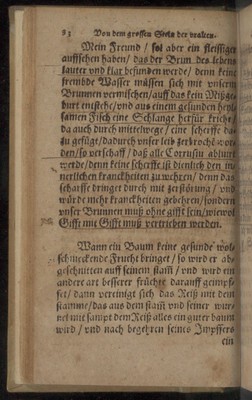 83 Von dem grossen Stein der uralten.
Mein Freund / sol aber ein fleissiger
auffsehen haben / das der Brun des lebens
lauter und klar befunden werde / denn keine
frembde Wasser müssen sich mit unserm
Brunnen vermischen / auff das kein Mißge-
burt entstehe / und aus einem gesunden heyl-
samen Fisch eine Schlange herfür krieche /
da auch durch mittelwege / eine scherffe da-
zu gefüge / dadurch unser leib zerbrochẽ wor-
den / so verschaff / daß alle Corrusiu abführt
werde / denn keine scherffe ist dienlich den in-
nerlichen kranckheiten zu wehren / denn das
scharffe dringet durch mit zerstörung / und
würde mehr kranckheiten gebehren / sondern
unser Brunnen muß ohne gifft sein / wiewol
Gifft mit Gifft muß vertrieben werden.
Wann ein Baum keine gesunde wol-
schmeckende Frucht bringet / so wird er ab-
geschnitten auff seinem stam̃ / und wird ein
andere art besserer früchte darauff gempf-
set / dann vereinigt sich das Reiß mit dem
stamme / das aus dem stam̃ und seiner wur-
tzel mit sampt dem Reiß alles ein guter baum
wird / und nach begehren seines Impffers
ein